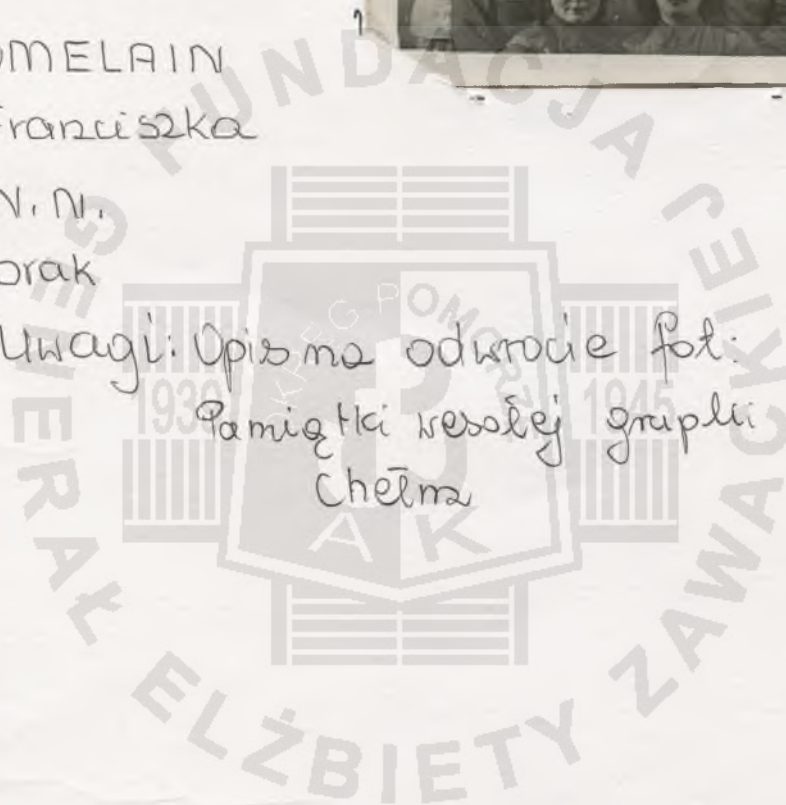 OMELAIN
Franciszka
N. N.
brak
Uwagi: Opis na odwrocie fot:
Pamiątki wesołej grupki
Chełmz
FUNDACJA GENERAŁ ELŻBIETY ZAWACKIEJ
OKRĘG POMORZE
1939 1945
AK